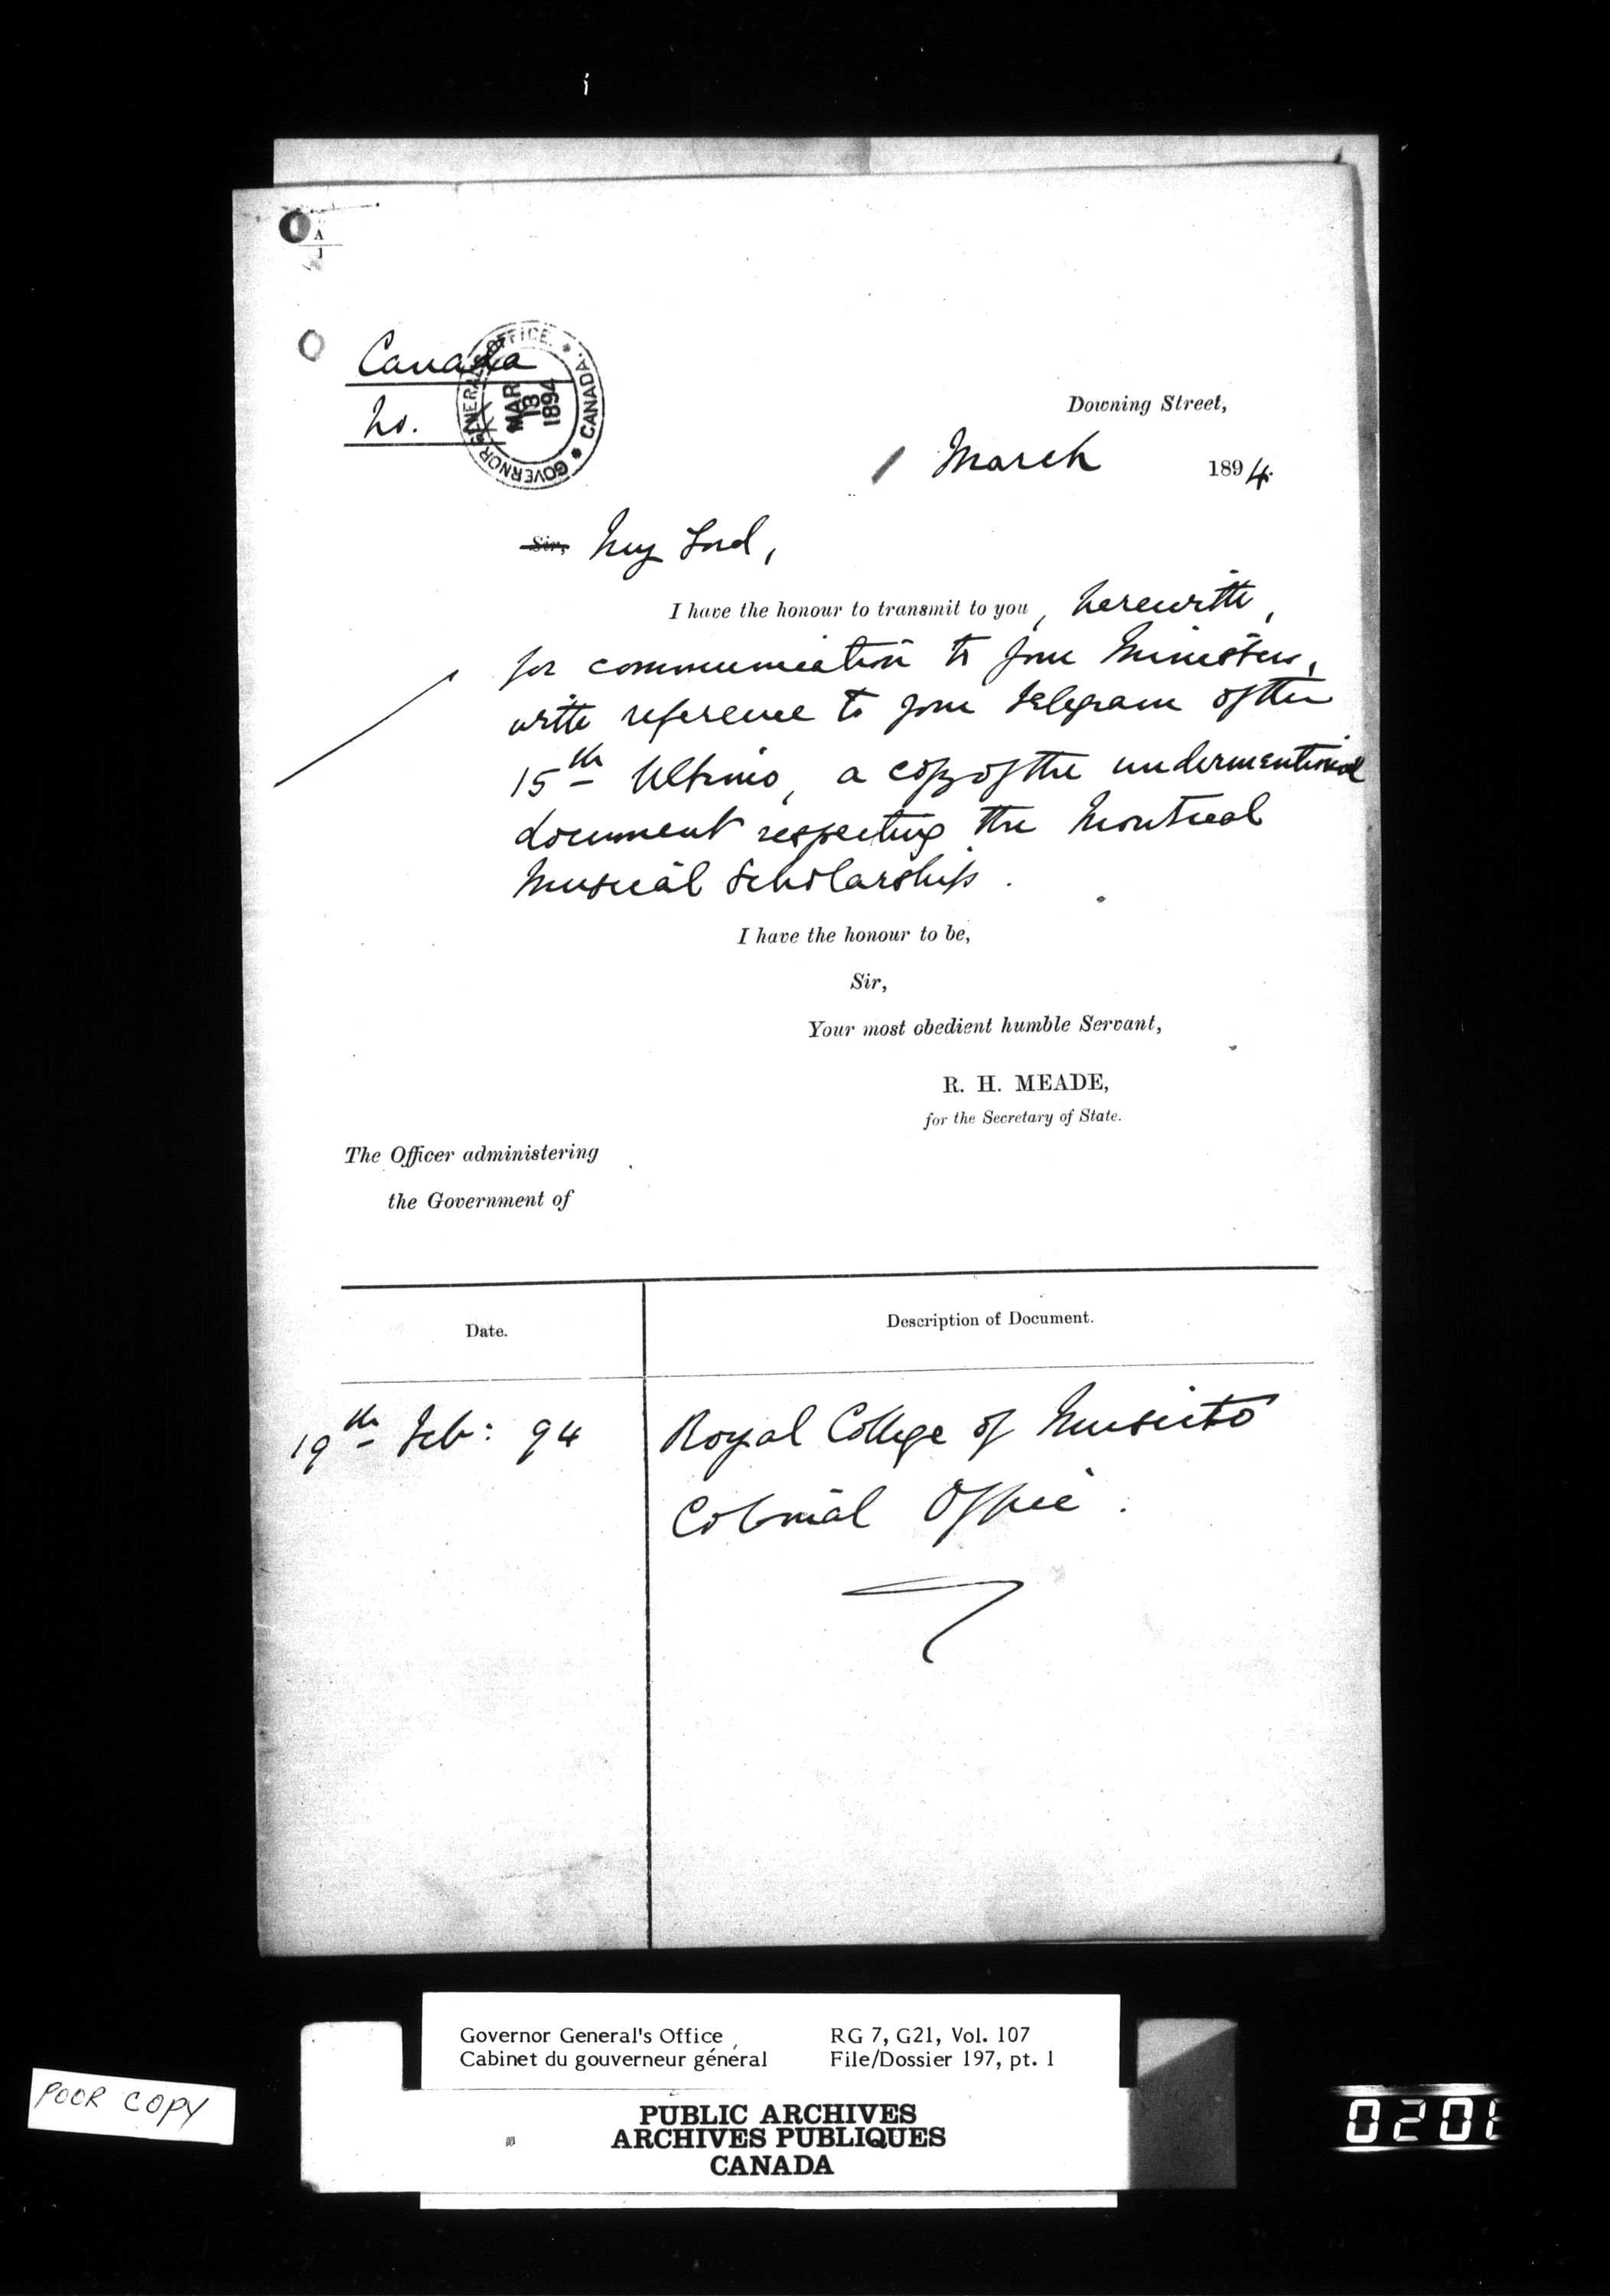 A
1
Canada
No.
GOVERNOR GENERAL'S OFFICE. * CANADA. *
MAR
13
1894
Downing Street,
1 March 1894.
Sir, My Lord,
I have the honour to transmit to you, herewith,
for communication to your Ministers,
with reference to your telegram of the
15th Ultimo, a copy of the undermentioned
document respecting the Montreal
Musical Scholarship.
I have the honour to be,
Sir,
Your most obedient humble Servant,
R. H. MEADE,
for the Secretary of State.
The Officer administering
the Government of
Date.
Description of Document.
19th Feb: 94
Royal College of Music to
Colonial Office.
Governor General's Office
Cabinet du gouverneur général
RG 7, G21, Vol. 107
File/Dossier 197, pt. 1
POOR COPY
PUBLIC ARCHIVES
ARCHIVES PUBLIQUES
CANADA
020